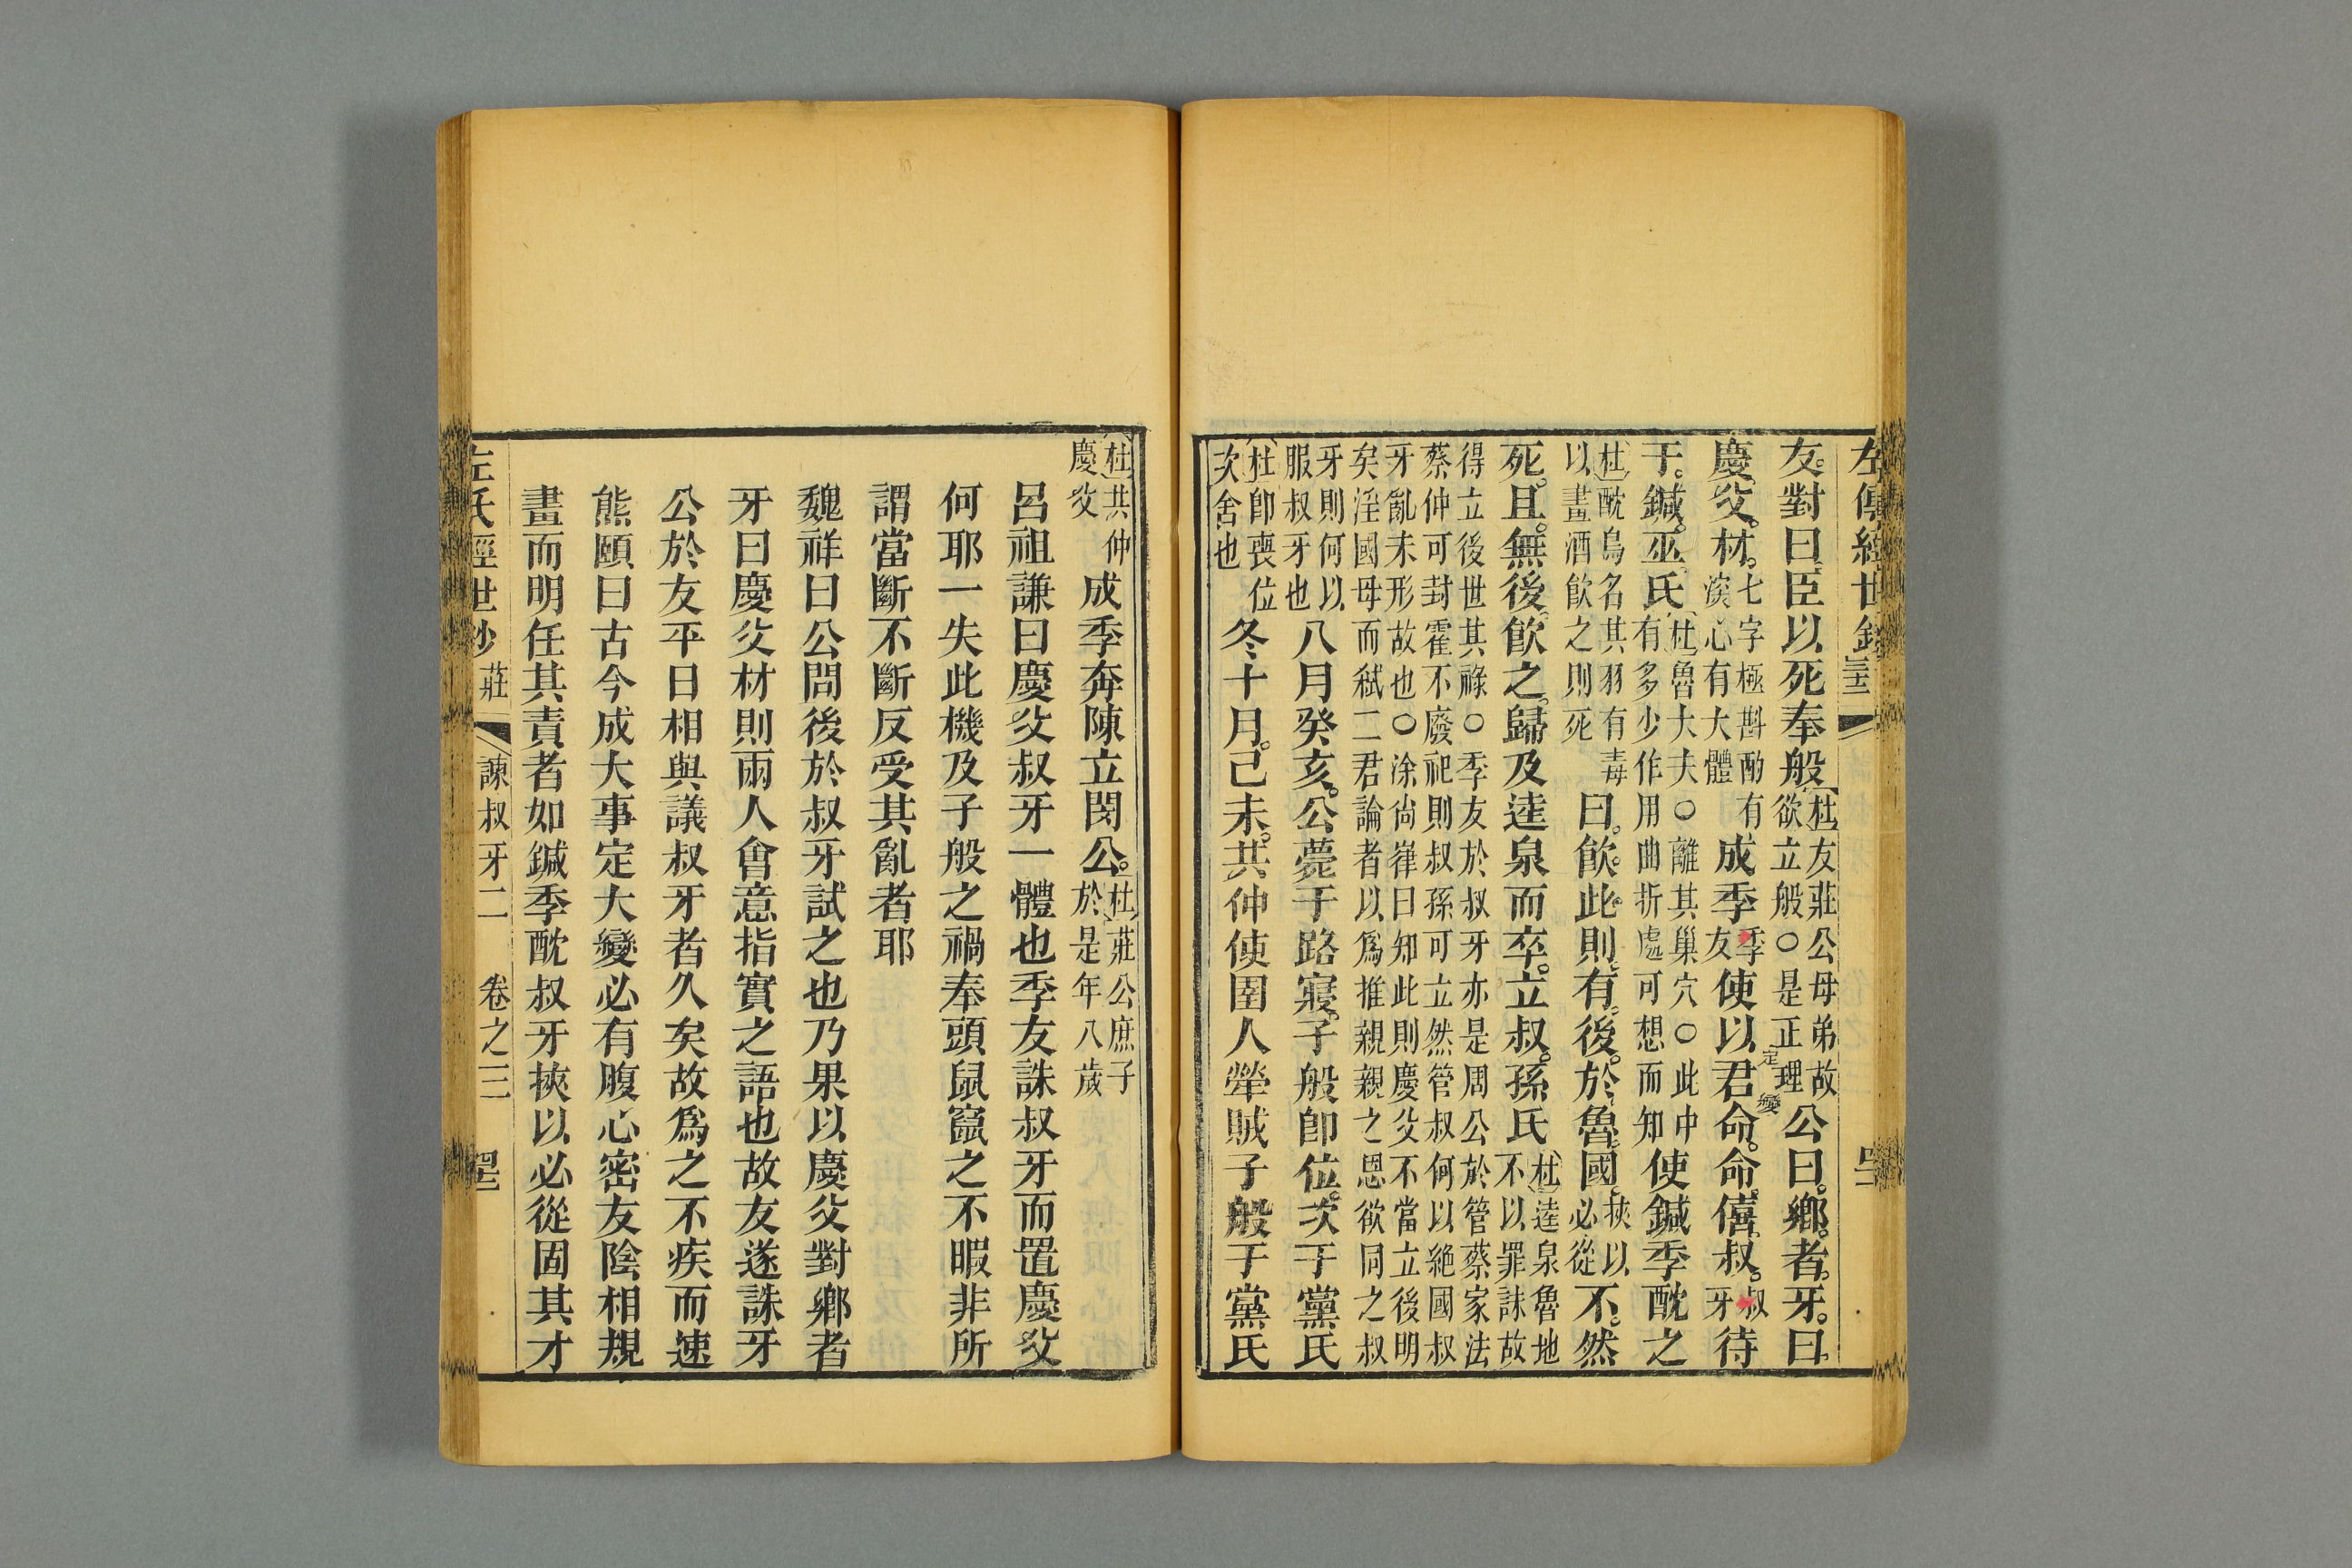 左傳經世鈔
友對曰臣以死奉般杜友莊公母弟故欲立般○是正理公曰鄉者牙曰
慶父材七字極斟酌有深心有大體成季季友使以君命命僖叔叔牙待
定變
于鍼巫氏杜魯大夫○離其巢穴○此中有多少作用曲折處可想而知使鍼季酖之
杜酖鳥名其羽有毒以畫酒飲之則死曰飲此則有後於魯國挾以必從不然
死且無後飲之歸及逵泉而卒立叔孫氏杜逵泉魯地不以罪誅故
得立後世其祿○季友於叔牙亦是周公於管蔡家法
蔡仲可封霍不廢祀則叔孫可立然管叔何以絕國叔
牙亂未形故也○涂尚嵂曰知此則慶父不當立後明
矣淫國母而弒二君論者以為推親親之恩欲同之叔
牙則何以服叔牙也八月癸亥公薨于路寢子般卽位次于黨氏
杜卽喪位次舍也冬十月己未共仲使圉人犖賊子般于黨氏
杜共仲慶父成季奔陳立閔公杜莊公庶子於是年八歲
呂祖謙曰慶父叔牙一體也季友誅叔牙而置慶父
何耶一失此機及子般之禍奉頭鼠竄之不暇非所
謂當斷不斷反受其亂者耶
魏祥曰公問後於叔牙試之也乃果以慶父對鄉者
牙曰慶父材則兩人會意指實之語也故友遂誅牙
公於友平日相與議叔牙者久矣故為之不疾而速
熊頤曰古今成大事定大變必有腹心密友陰相規
畫而明任其責者如鍼季酖叔牙挾以必從固其才
左氏經世鈔 莊 諫叔牙二 卷之三